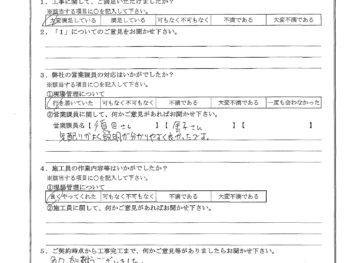 1．工事に関して、ご満足いただけましたか？
※該当する項目に○を記入して下さい。
大変満足している 満足している 可もなく不可もなく 不満である 大変不満である
2．「1」についてのご意見をお聞かせ下さい。
3．弊社の営業職員の対応はいかがでしたか？
※該当する項目に○を記入して下さい。
①現場管理について
行き届いていた 可もなく不可もなく 不満である 大変不満である 一度も会わなかった
②営業職員に関して、何かご意見があればお聞かせ下さい。
営業職員名【 さん 】【 さん 】【 】
気配りがよく説明が分かりやすく良かったです。
4．施工員の作業内容等はいかがでしたか？
※該当する項目に○を記入して下さい。
①現場管理について
良くやってくれた 可もなく不可もなく 不満である 大変不満である
②施工員に関して、何かご意見があればお聞かせ下さい。
5．ご契約時点から工事完工まで、何かご意見等がありましたらお聞かせ下さい。